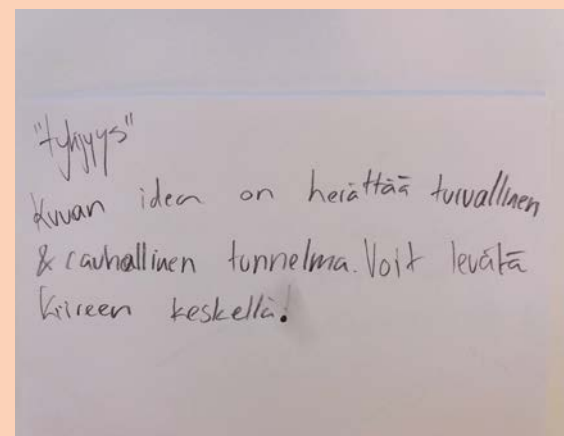 "tyhjyys"
Kuvan idea on herättää turvallinen
& rauhallinen tunnelma. Voit levätä
kiireen keskellä!